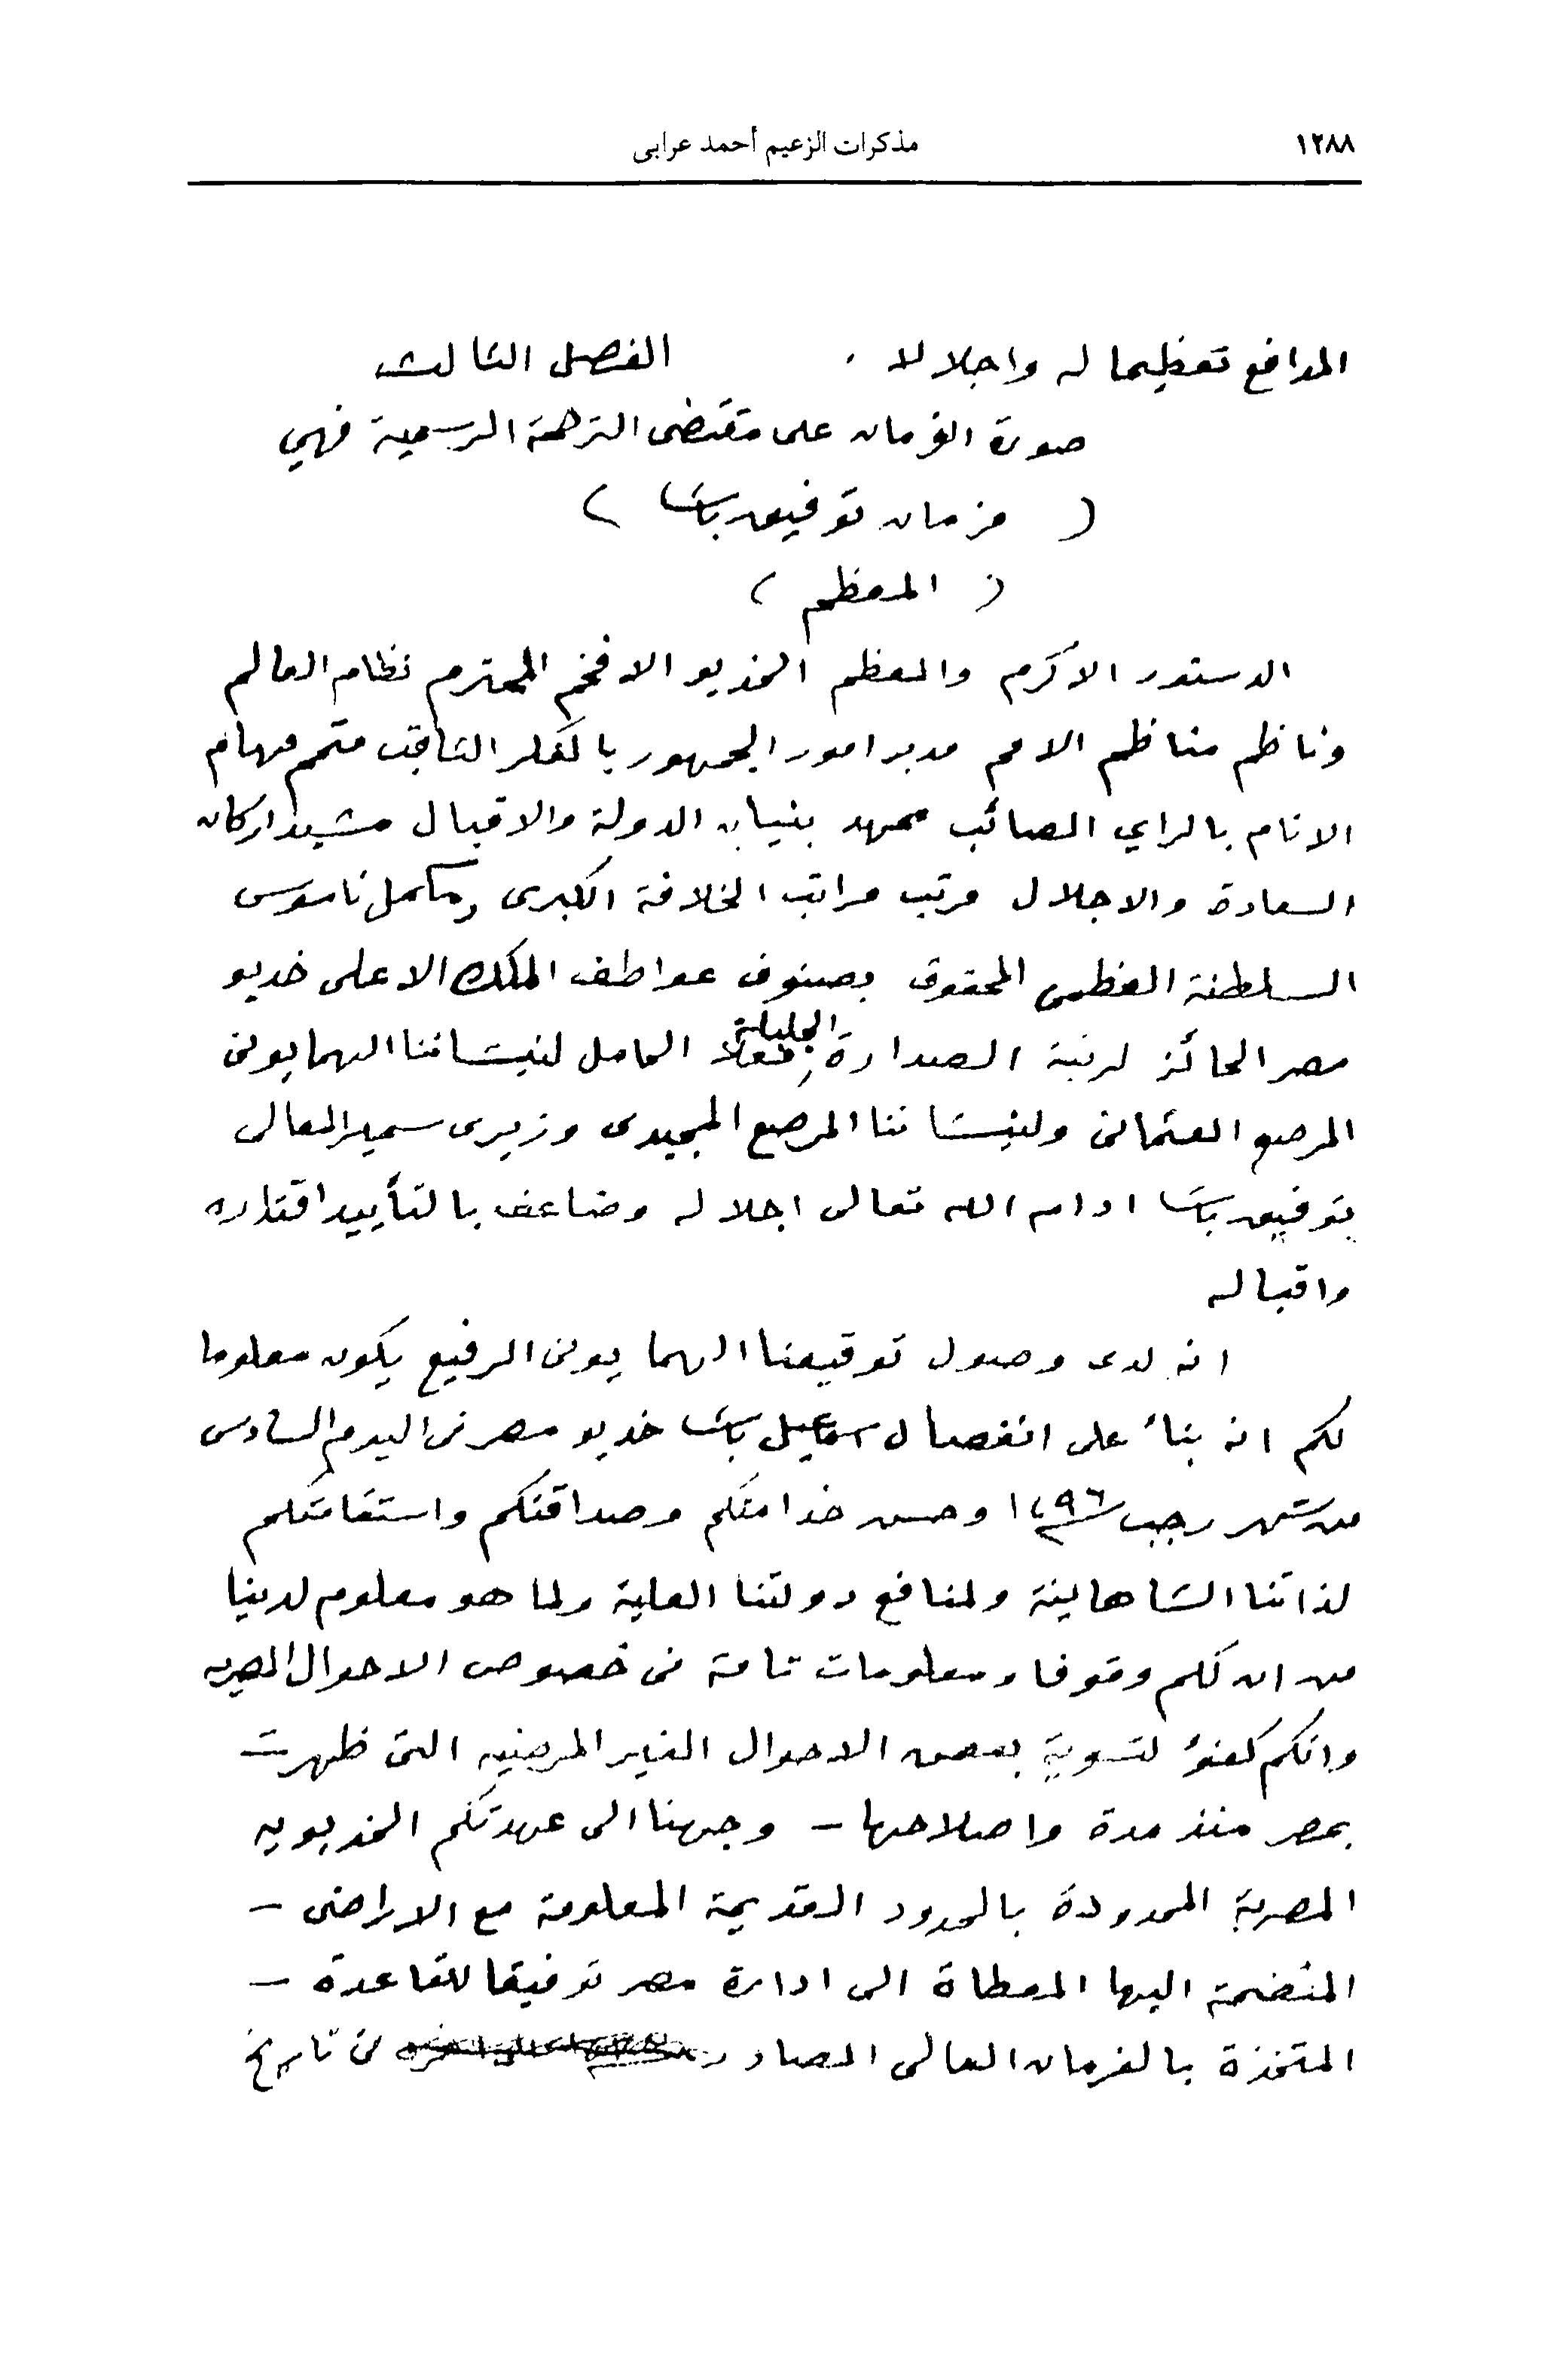 ١٢٨٨ مذكرات الزعيم أحمد عرابى
المدافع تعظيما له واجلالا . الفصل الثالث
صورة الفرمان على مقتضى الترجمة الرسمية فهي
( فرمان توفيق باشا )
( المعظم )
الدستور الاكرم والمعظم الخديو الافخم المحترم نظام العالم
وناظم مناظم الامم مدبر امور الجمهور بالفكر الثاقب متمم مهام
الانام بالراي الصائب ممهد بنيان الدولة والاقبال مشيد اركان
السعادة والاجلال مرتب مراتب الخلافة الكبرى ومكمل ناموس
السلطنة العظمى المحفوف بصنوف عواطف الملك الاعلى خديو
مصر الحائز لرتبة الصدارة الجليلة فعلا الحامل لنيشاننا الهمايونى
المرصع العثمانى ولنيشاننا المرصع المجيدى وزيرى سمير المعالى
توفيق باشا ادام الله تعالى اجلاله وضاعف بالتأييد اقتداره
واقباله
انه لدى وصول توقيعنا الهمايونى الرفيع يكون معلوما
لكم انه بناء على انفصال اسماعيل باشا خديو مصر فى اليوم السادس
من شهر رجب سنة ١٢٩٦ وحسن خدامتكم وصداقتكم واستقامتكم
لذاتنا الشاهاينة ولمنافع دولتنا العلية ولما هو معلوم لدينا
من ان لكم وقوفا ومعلومات تامة فى خصوص الاحوال المصريه
وانكم كفنوء لتسوية بعض الاحوال الغير المرضيه التى ظهرت
بمصر منذ مدة واصلاحها - وجهنا الى عهدتكم الخديويه
المصرية المحدودة بالحدود القديمة المعلومة مع الاراضى -
المنضمة اليها المعطاة الى ادارة مصر توفيقا للقاعدة -
المتخذة بالفرمان العالى الصادر فى تاريخ